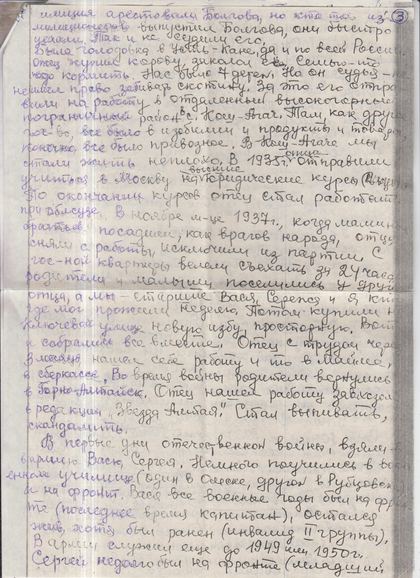 милиция арестовали Болгова, но кто то из
милиционеров выпустил Болгова, они быстро
уехали. Так и не судили его.
Была голодовка в Усть-Кане, да и по всей России.
Отец купил корову, заколол её. Семью-то
надо кормить. Нас было 7 детей. Но он судья - не
имел право забивать скотину. За это его отпра
вили на работу в отдаленный высокогорный
пограничный район с. Кош-Агач. Там как другое
гос-во, все было в изобилии и продукты и товары
конечно все было привозное. В Кош-Агаче мы
стали жить неплохо. В 1935г. отца отправили
учиться в Москву на высшие юридические курсы
По окончании курсов отец стал работать
при облсуде. В ноябре м-це 1937г., когда маминых
братьев посадили, как врагов народа, отца
сняли с работы, исключили из партии. С
гос-ной квартиры велели съехать за 24 часа
родители и малыши поселились у друга
отца, а мы - старшие Вася, Сережа и я кто
где мог прожили неделю. Потом купили на
Ключевой улице новую избу, просторную. Вот
и собрались все вместе. Отец с трудом через
3 месяца нашел себе работу и то в Майме,
в сберкассе. Во время войны родители вернулись
в Горно-Алтайск. Отец нашел работу завхозом
в редакции "Звезда Алтая". Стал выпивать,
скандалить.
В первые дни отечественной войны, взяли в
армию Васю, Сергея. Немного поучились в во
енном училище (один в Омске, другой в Рубцовске)
и на фронт. Вася все военные годы был на фрон
те (последнее время капитан), остался
жив, хотя был ранен (инвалид II группы).
В армии служил еще до 1949 или 1950г.
Сергей недолго был на фронте (младший
3